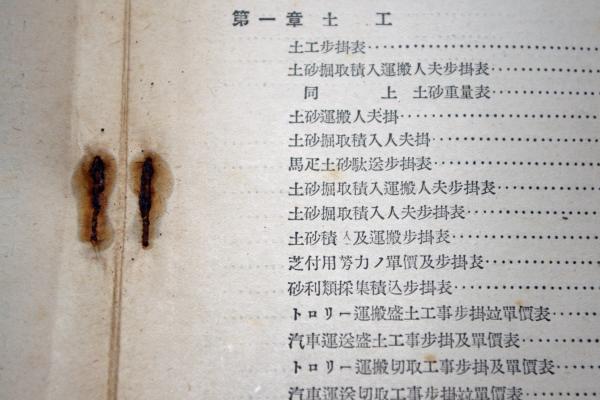 第一章 土工
土工步掛表
土砂掘取積入運搬人夫步掛表
同上 土砂重量表
土砂運搬人夫掛
土砂掘取積入人夫掛
馬疋土砂駄送步掛表
土砂掘取積入運搬人夫步掛表
土砂掘取積入人夫步掛表
土砂積込及運搬步掛表
芝付用努力ノ單價及步掛表
砂利類採集積込步掛表
トロリー運搬盛土工事步掛竝單價表
汽車運送盛土工事步掛及單價表
トロリー運搬切取工事步掛及單價表
汽車運送切取工事步掛竝單價表